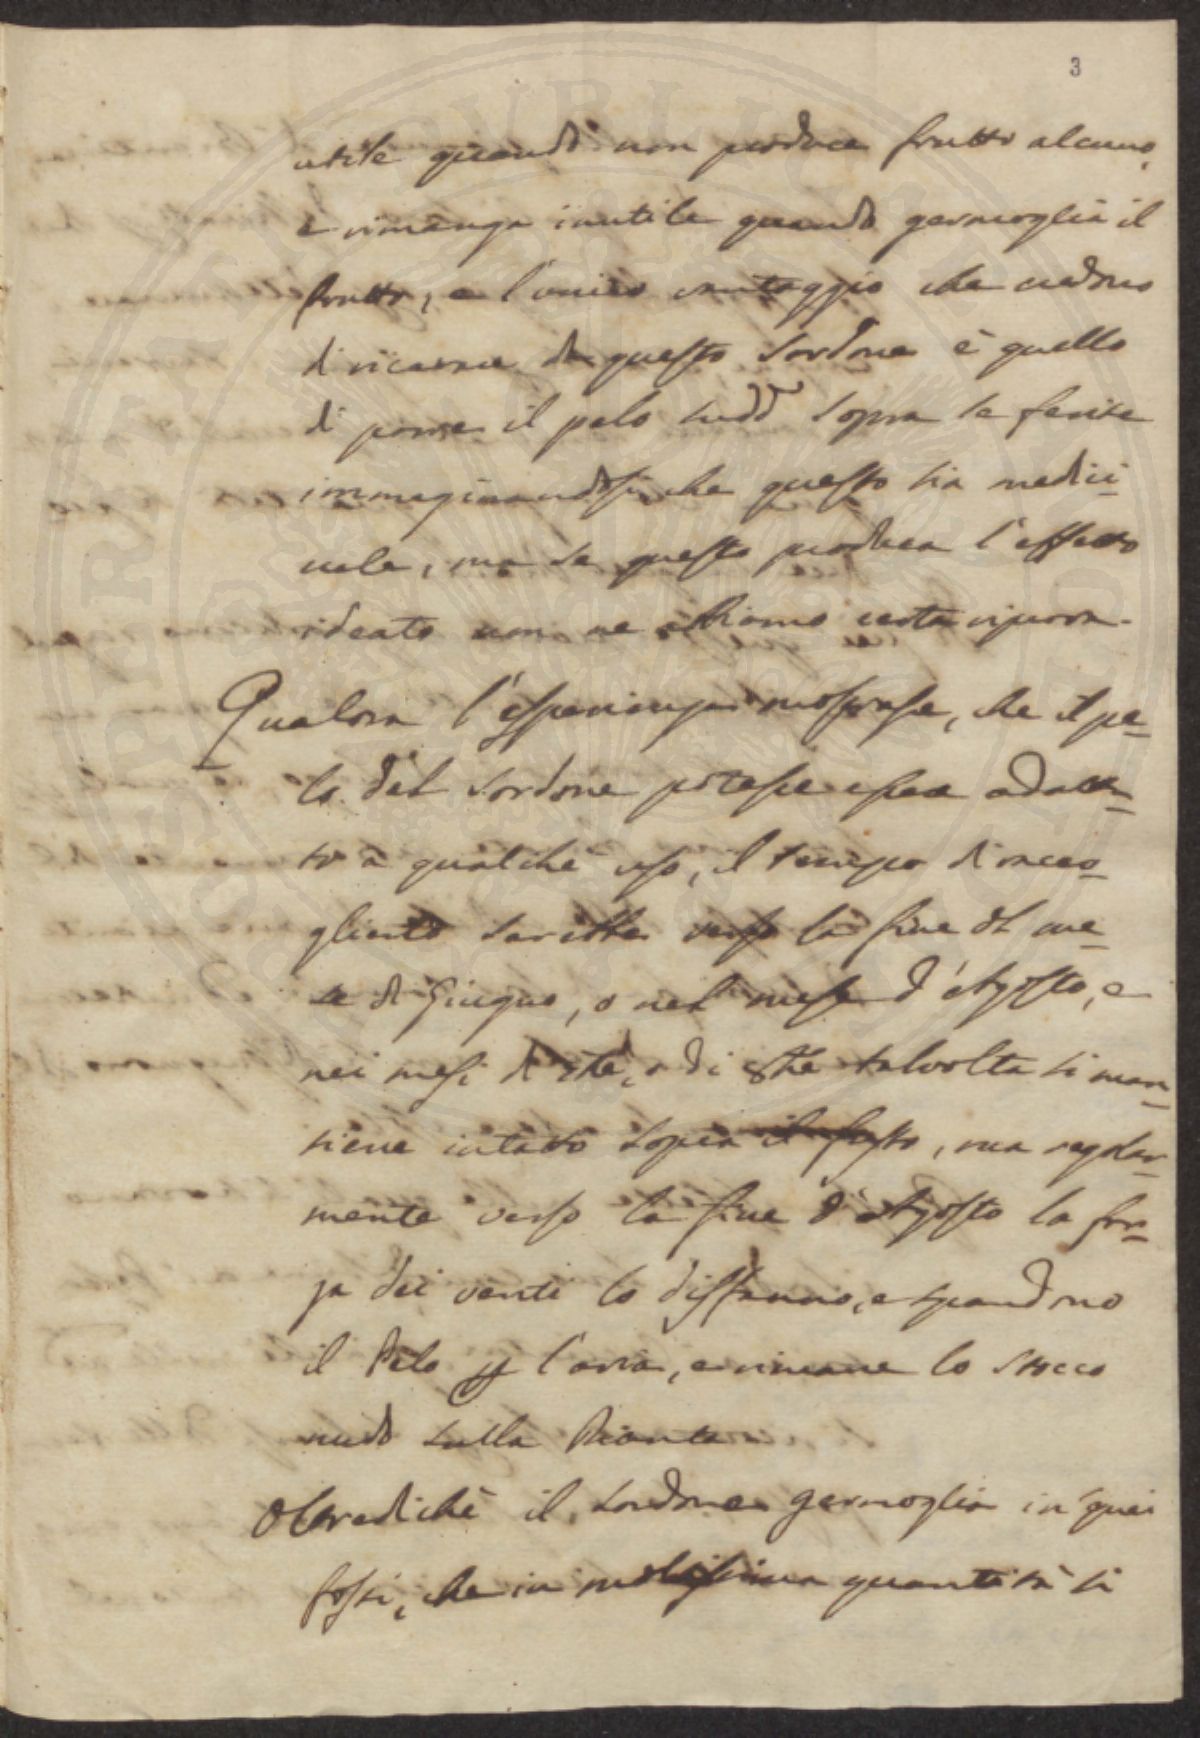 3
utile quando non produce frutto alcuno,
e rimanga inutile quando germoglia il
frutto, e l'unico vantaggio che credono
di ricavare da questo Sordone è quello
di porre il pelo sudd.º sopra le ferite
immaginandosi che questo sia medici-
nale, ma se questo produca l'effetto
ideato non ne abbiamo certa riprova.
Qualora l'esperienza mostrasse, che il pe-
lo del Sordone potesse esser adatta-
to a qualche uso, il tempo di racco-
glierlo sarebbe verso la fine del me-
se di Giugno, o nel mese d'Agosto, e
nei mesi di 7bre, e di 8bre talvolta si man-
tiene intatto sopra il fusto, ma regolar-
mente verso la fine d'Agosto la for-
za dei venti lo disfanno, e spandono
il Pelo p l'aria, e rimane lo stocco
nudo sulla Pianta
Oltredichè il Sordone germoglia in quei
fossi, che in moltissima quantità si